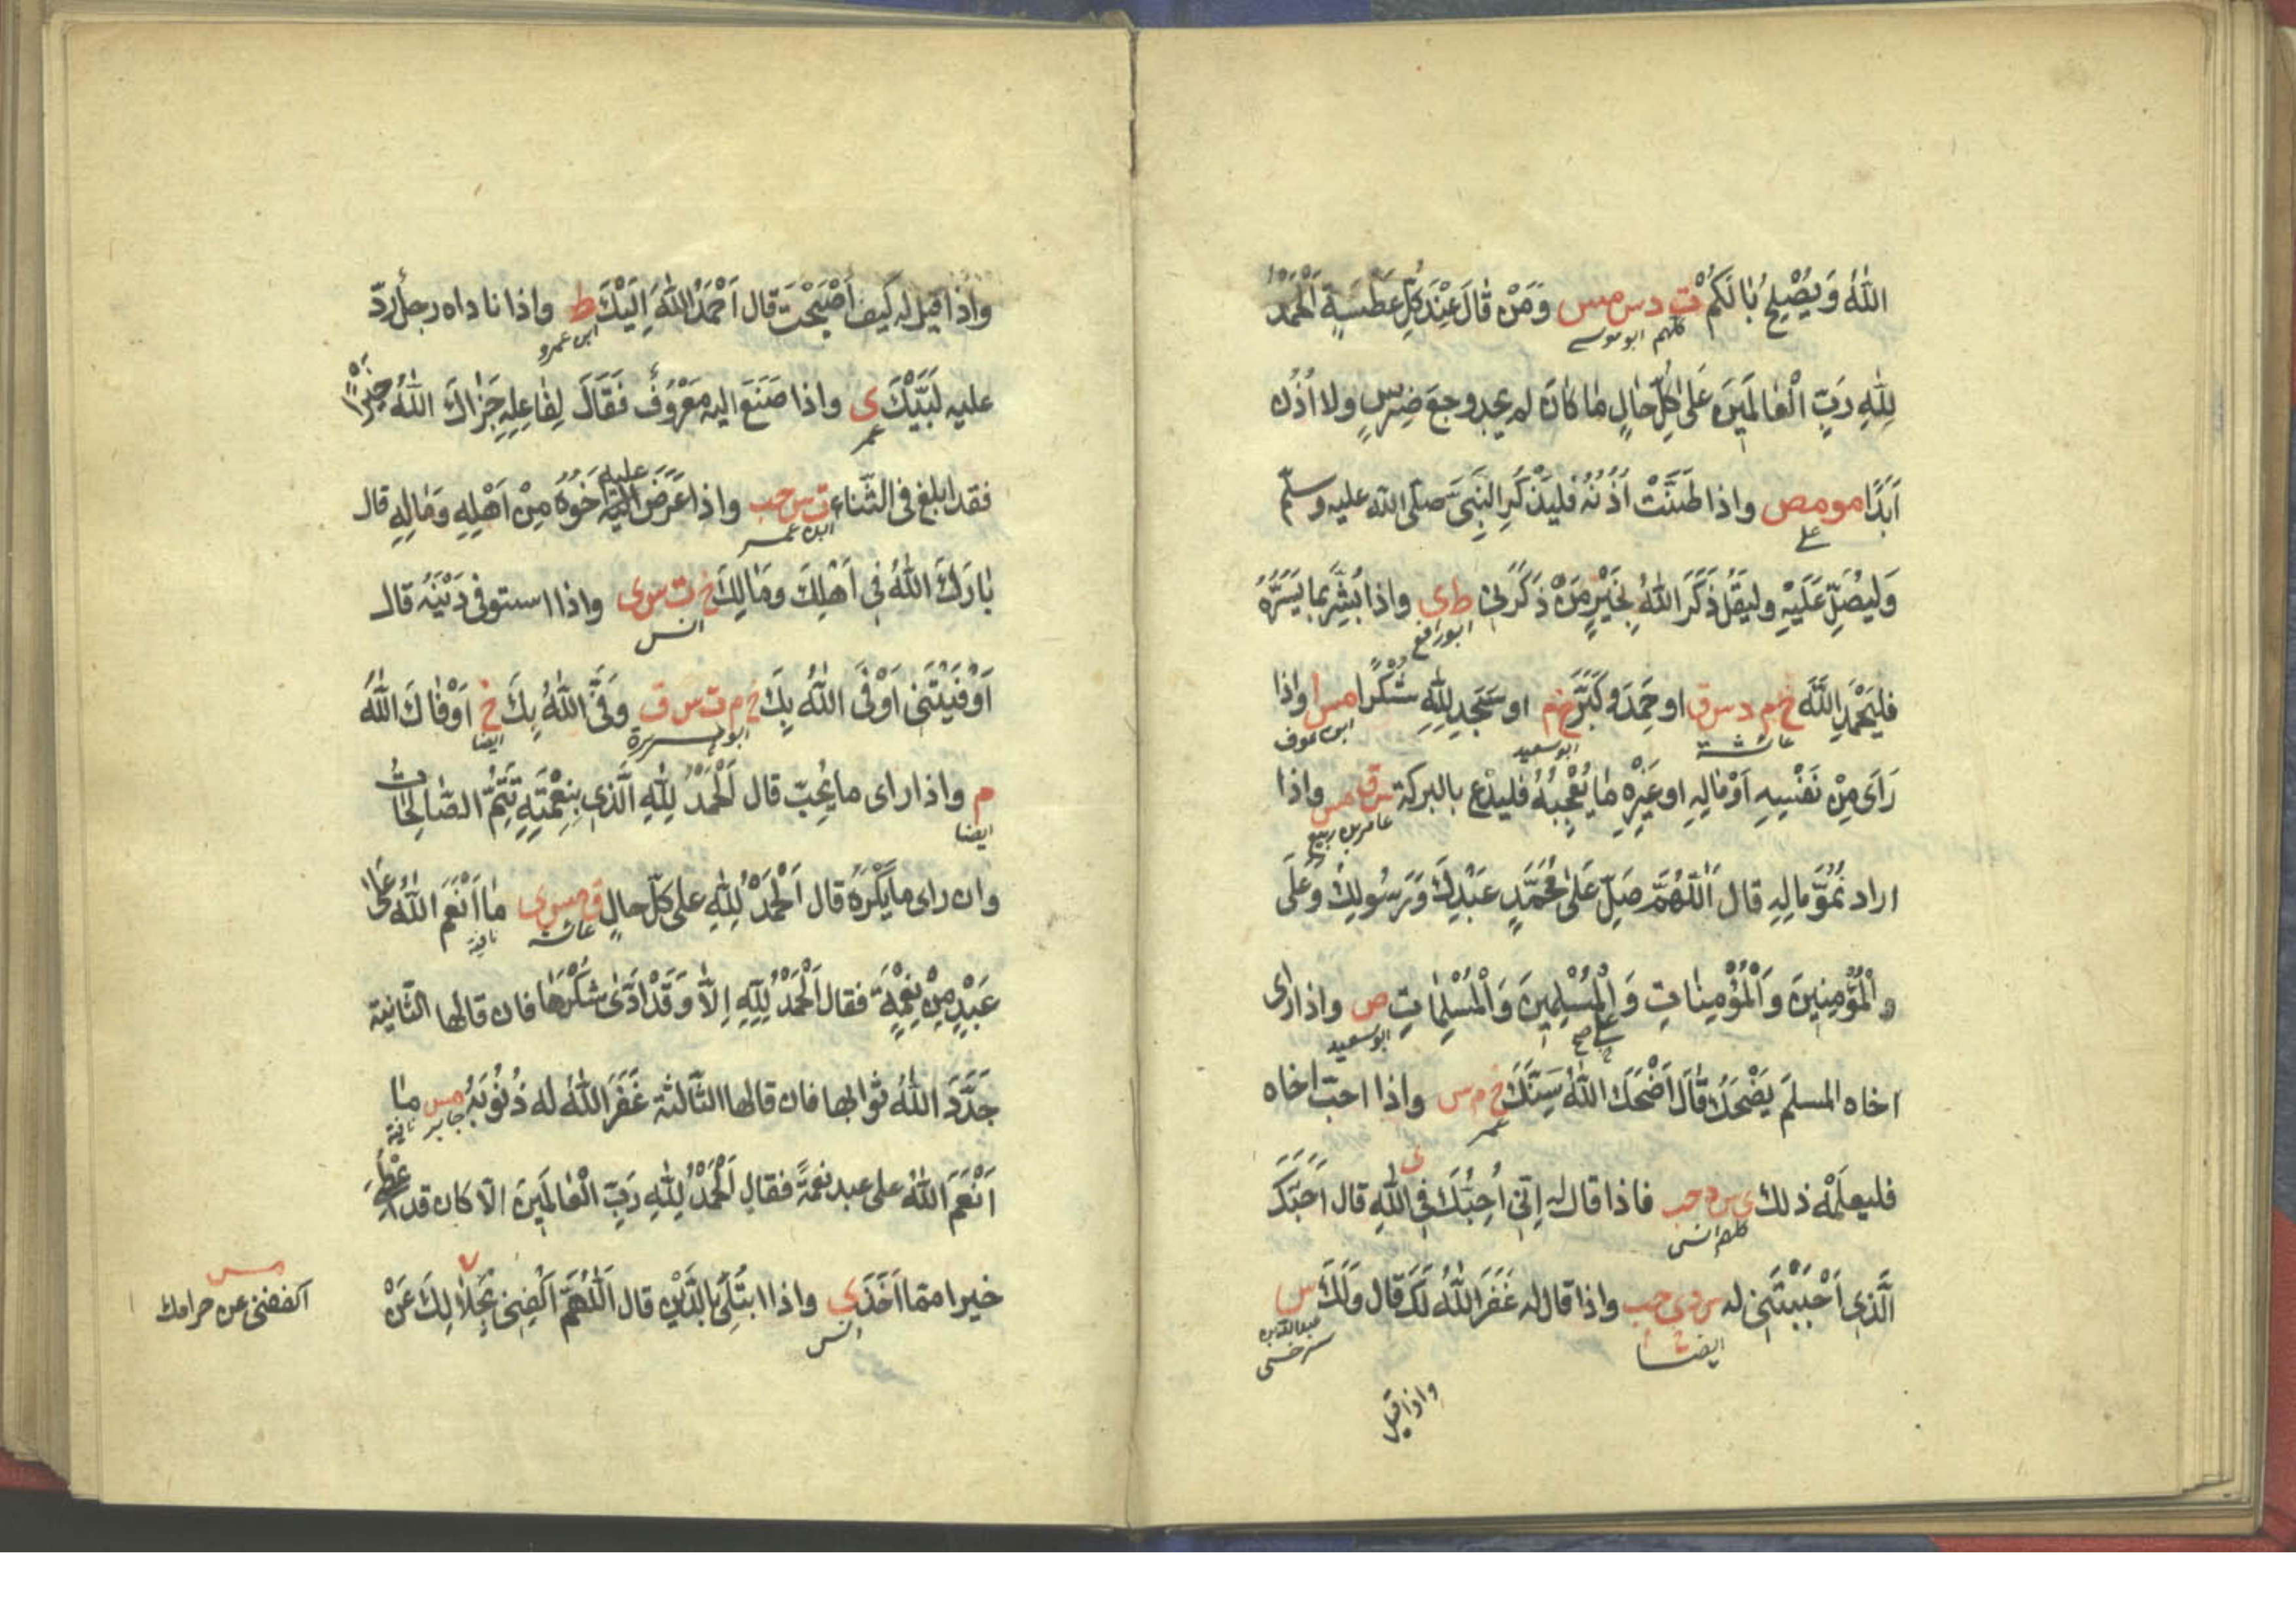 اللهُ وَيُصْلِحُ بَالَكُمْ ت د س مس وَمَنْ قَالَ عِنْدَ كُلِّ عَطْسَةٍ اَلْحَمْدُ
كلهم ابو موسى
لِلّٰهِ رَبِّ الْعَالَمِينَ عَلٰى كُلِّ حَالٍ مَا كَانَ لم يجد وجعَ ضِرْسٍ ولا اُذُنٍ
اَبَدًا مو مص واذا طَنَّتْ اُذُنُهُ فليَذْكُرِ النَّبِىَّ صَلَّى الله عليه وسلّم
على
وَليُصَلِّ عَلَيْهِ وليَقُلْ ذَكَرَ اللهُ بِخَيْرٍ مَنْ ذَكَرَنِى ط ى واذا بُشِّرَ بما يَسُرُّهُ
ابو رافع
فليَحْمَدِ اللّٰهَ خ م د س ق او حَمِدَ وكَبَّرَ خ م او سَجَدَ لِلّٰهِ شُكْرًا مس واذا
عائشة ابو سعيد ابن عوف
رَاَى مِنْ نَفْسِهِ اَوْ مَالِهِ او غَيْرِهِ مَا يُعْجِبُهُ فليدْعُ بالبركة س ق مس واذا
عامر بن ربيع
اراد نُمُوَّ مالِهِ قال اَللّٰهُمَّ صَلِّ عَلٰى مُحَمَّدٍ عَبْدِكَ وَرَسُولِكَ وَعَلَى
الْمُؤْمِنِينَ وَالْمُؤْمِنَاتِ وَالْمُسْلِمِينَ وَالْمُسْلِمَاتِ ص واذا راى
ابو سعيد
اخاه المسلمَ يَضْحَكُ قَالَ اَضْحَكَ اللهُ سِنَّكَ خ م س واذا احبّ اخاه
عمر
فليعلمْهُ ذلك ى س د حب فاذا قال له اِنِّى اُحِبُّكَ فِى اللهِ قال اَحَبَّكَ
كلهم انس
الَّذِى اَحْبَبْتَنِى له س د ى حب واذا قال له غَفَرَ اللهُ لَكَ قال وَلَكَ س
ايضا عبد الله بن سرخسى
واذا قيل
واذا قيل له كَيفَ اَصْبَحْتَ قال اَحْمَدُ اللهَ اِلَيْكَ ط واذا ناداه رجلٌ ردّ
ابن عمرو
عليه لَبَّيْكَ ى واذا صَنَعَ اليه مَعْرُوفٌ فَقَالَ لِفَاعِلِهِ جَزَاكَ اللهُ خَيْرًا
عمر
فقد ابلغ فى الثّناء ت س حب واذا عَرَضَ عليه اَخُوهُ مِنْ اَهْلِهِ وَمَالِهِ قال
ابن عمر
بَارَكَ اللهُ فِى اَهْلِكَ وَمَالِكَ خ ت س ى واذا استوفى دَيْنَهُ قال
انس
اَوْفَيْتَنِى اَوْفَى اللهُ بِكَ خ م ت س ق وَفَّى اللهُ بِكَ خ اَوْفَاكَ اللهُ
ابو هريرة ايضا
م واذا راى ما يُحِبّ قال اَلْحَمْدُ لِلّٰهِ الَّذِى بِنِعْمَتِهِ تَتِمُّ الصَّالِحَاتُ
ايضا
وان راى ما يَكْرَهُ قال اَلْحَمْدُ لِلّٰهِ على كلّ حالٍ ق مس ى مَا اَنْعَمَ اللهُ عَلٰى
عائشة
عَبْدٍ مِنْ نِعْمَةٍ فقال اَلْحَمْدُ لِلّٰهِ اِلَّا وَقَدْ اَدّٰى شُكْرَهَا فان قالها الثّانية
جَدَّدَ اللهُ ثوابها فان قالها الثّالثة غَفَرَ اللهُ له ذُنُوبَهُ مس مَا
جابر
اَنْعَمَ اللهُ على عبد نعمةً فقال اَلْحَمْدُ لِلّٰهِ رَبِّ الْعَالَمِينَ الّا كان قد اعْطَى
خيرا ممّا اَخَذَ ى واذا ابتُلِىَ بالدَّيْنِ قال اَللّٰهُمَّ اكْفِنِى بِحَلَالِكَ عَنْ
انس
مس
اكففنى عن حرامك